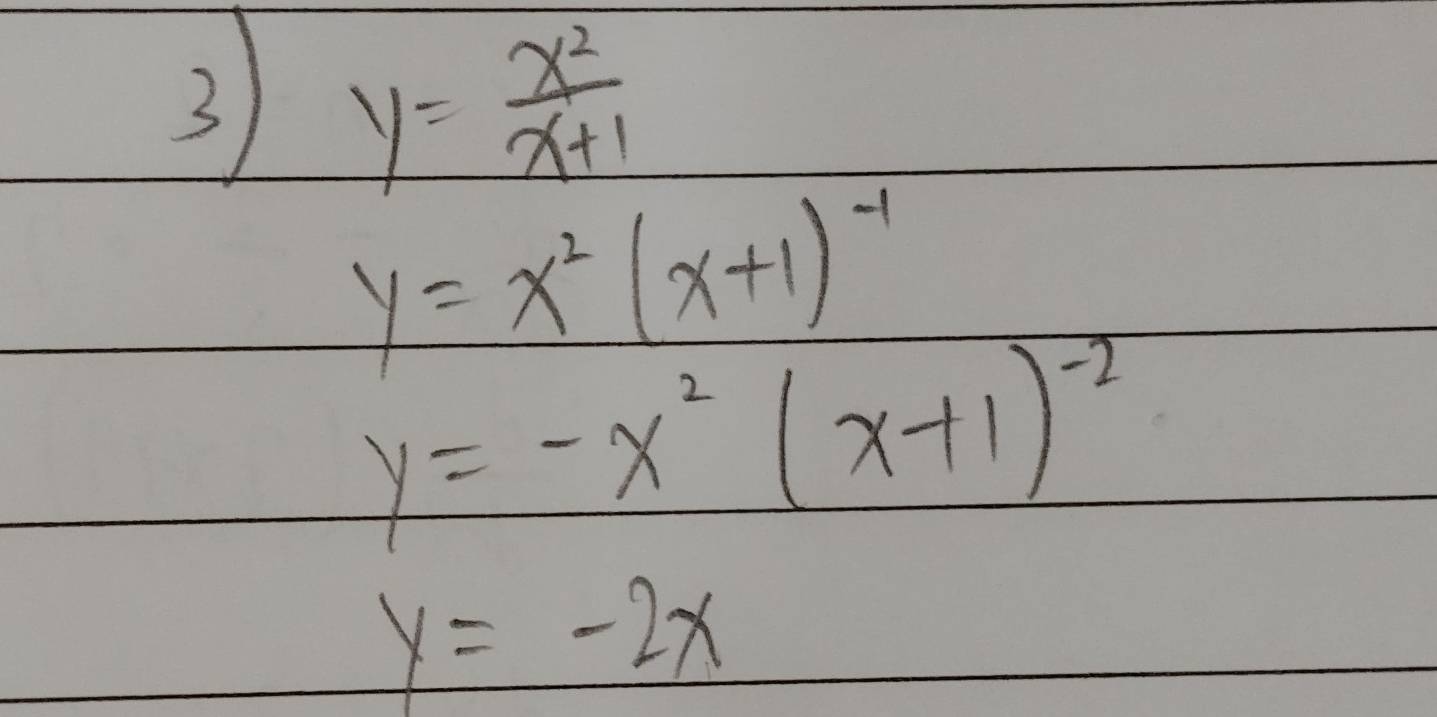 3) y = x²/(x+1)
y = x² (x+1)⁻¹
y = -x² (x+1)⁻²
y = -2x